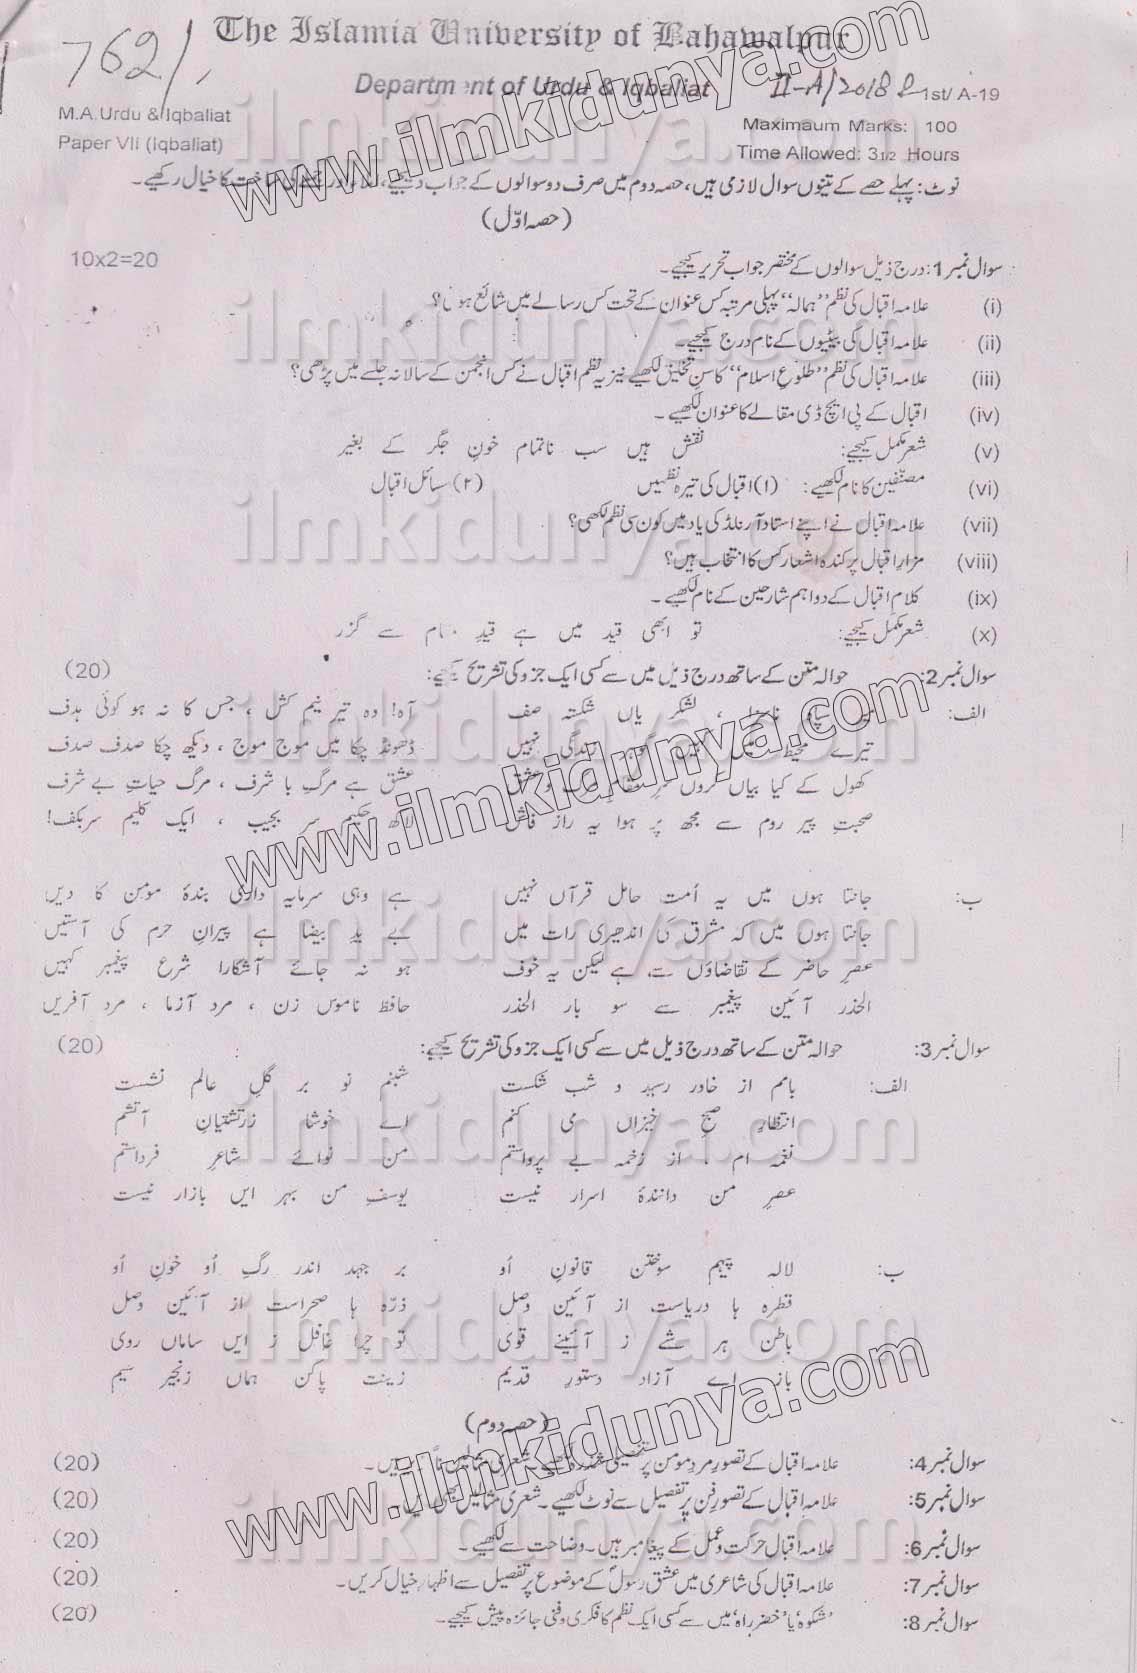 The Islamia University of Bahawalpur
762/,
Department of Urdu & Iqbaliat
II-A/2018
1st/ A-19
M.A.Urdu & Iqbaliat
Maximaum Marks: 100
Paper VII (Iqbaliat)
Time Allowed: 3 1/2 Hours
نوٹ: پہلے حصے کے تینوں سوال لازمی ہیں، حصہ دوم میں صرف دو سوالوں کے جواب دیجیے، کا خیال رکھیے۔
(حصہ اوّل)
سوال نمبر 1: درج ذیل سوالوں کے مختصر جواب تحریر کیجیے۔ 10x2=20
(i) علامہ اقبال کی نظم "ہمالہ" پہلی مرتبہ کس عنوان کے تحت کس رسالے میں شائع ہوئی؟
(ii) علامہ اقبال کی بیٹیوں کے نام درج کیجیے۔
(iii) علامہ اقبال کی نظم "طلوعِ اسلام" کا سنِ تخلیق لکھیے نیز یہ نظم اقبال نے کس انجمن کے سالانہ جلسے میں پڑھی؟
(iv) اقبال کے پی ایچ ڈی مقالے کا عنوان لکھیے۔
(v) شعر مکمل کیجیے: نقش ہیں سب ناتمام خونِ جگر کے بغیر
(vi) مصنّفین کا نام لکھیے: (۱) اقبال کی تیرہ نظمیں (۲) مسائل اقبال
(vii) علامہ اقبال نے اپنے استاد آرنلڈ کی یاد میں کون سی نظم لکھی؟
(viii) مزارِ اقبال پر کندہ اشعار کس کا انتخاب ہیں؟
(ix) کلامِ اقبال کے دو اہم شارحین کے نام لکھیے۔
(x) شعر مکمل کیجیے: تو ابھی قید میں ہے قیدِ مقام سے گزر
سوال نمبر 2: حوالہ متن کے ساتھ درج ذیل میں سے کسی ایک جزو کی تشریح کیجیے: (20)
الف: سپاہ ناسزا، لشکریاں شکستہ صف آہ! وہ تیر نیم کش، جس کا نہ ہو کوئی ہدف
تیرے محیط میں کہیں زندگی نہیں ڈھونڈ چکا میں موج موج، دیکھ چکا صدف صدف
کھول کے کیا بیاں کروں سرِ مقامِ مرگ و عشق عشق ہے مرگِ با شرف، مرگ حیاتِ بے شرف
صحبتِ پیر روم سے مجھ پر ہوا یہ راز فاش لاکھ حکیم سر بجیب، ایک کلیم سربکف!
ب: جانتا ہوں میں یہ اُمت حامل قرآں نہیں ہے وہی سرمایہ داری بندۂ مومن کا دیں
جانتا ہوں میں کہ مشرق کی اندھیری رات میں بے یدِ بیضا ہے پیرانِ حرم کی آستیں
عصرِ حاضر کے تقاضاؤں سے ہے لیکن یہ خوف ہو نہ جائے آشکارا شرع پیغمبر کہیں
الحذر آئین پیغمبر سے سو بار الحذر حافظ ناموس زن، مرد آزما، مرد آفریں
سوال نمبر 3: حوالہ متن کے ساتھ درج ذیل میں سے کسی ایک جزو کی تشریح کیجیے: (20)
الف: بامم از خاور رسید و شب شکست شبنم نو بر گلِ عالم نشست
انتظارِ صبح خیزاں می کنم اے خوشا زرتشتیانِ آتشم
نغمہ ام، از زخمہ بے پرواستم من نوائے شاعرِ فرداستم
عصرِ من دانندۂ اسرار نیست یوسفِ من بہر ایں بازار نیست
ب: لالہ پیہم سوختن قانونِ اُو بر جہد اندر رگِ اُو خونِ اُو
قطرہ ہا دریاست از آئین وصل ذرّہ ہا صحراست از آئین وصل
باطن ہر شے ز آئینے قوی تو چرا غافل ز ایں ساماں روی
باز اے آزاد دستورِ قدیم زینت پاکن ہماں زنجیر سیم
(حصہ دوم)
سوال نمبر 4: علامہ اقبال کے تصور مردِ مومن پر تفصیلی لکھیے۔ شعری مثالیں دیں۔ (20)
سوال نمبر 5: علامہ اقبال کے تصورِ فن پر تفصیل سے نوٹ لکھیے۔ شعری مثالیں بھی دیں۔ (20)
سوال نمبر 6: علامہ اقبال حرکت و عمل کے پیغامبر ہیں۔ وضاحت سے لکھیے۔ (20)
سوال نمبر 7: علامہ اقبال کی شاعری میں عشقِ رسولؐ کے موضوع پر تفصیل سے اظہارِ خیال کریں۔ (20)
سوال نمبر 8: 'شکوہ' یا 'خضرِ راہ' میں سے کسی ایک نظم کا فکری و فنی جائزہ پیش کیجیے۔ (20)
www.ilmkidunya.com
www.ilmkidunya.com
www.ilmkidunya.com
ilmkidunya.com
ilmkidunya.com
ilmkidunya.com
ilmkidunya.com
ilmkidunya.com
ilmkidunya.com
ilmkidunya.com